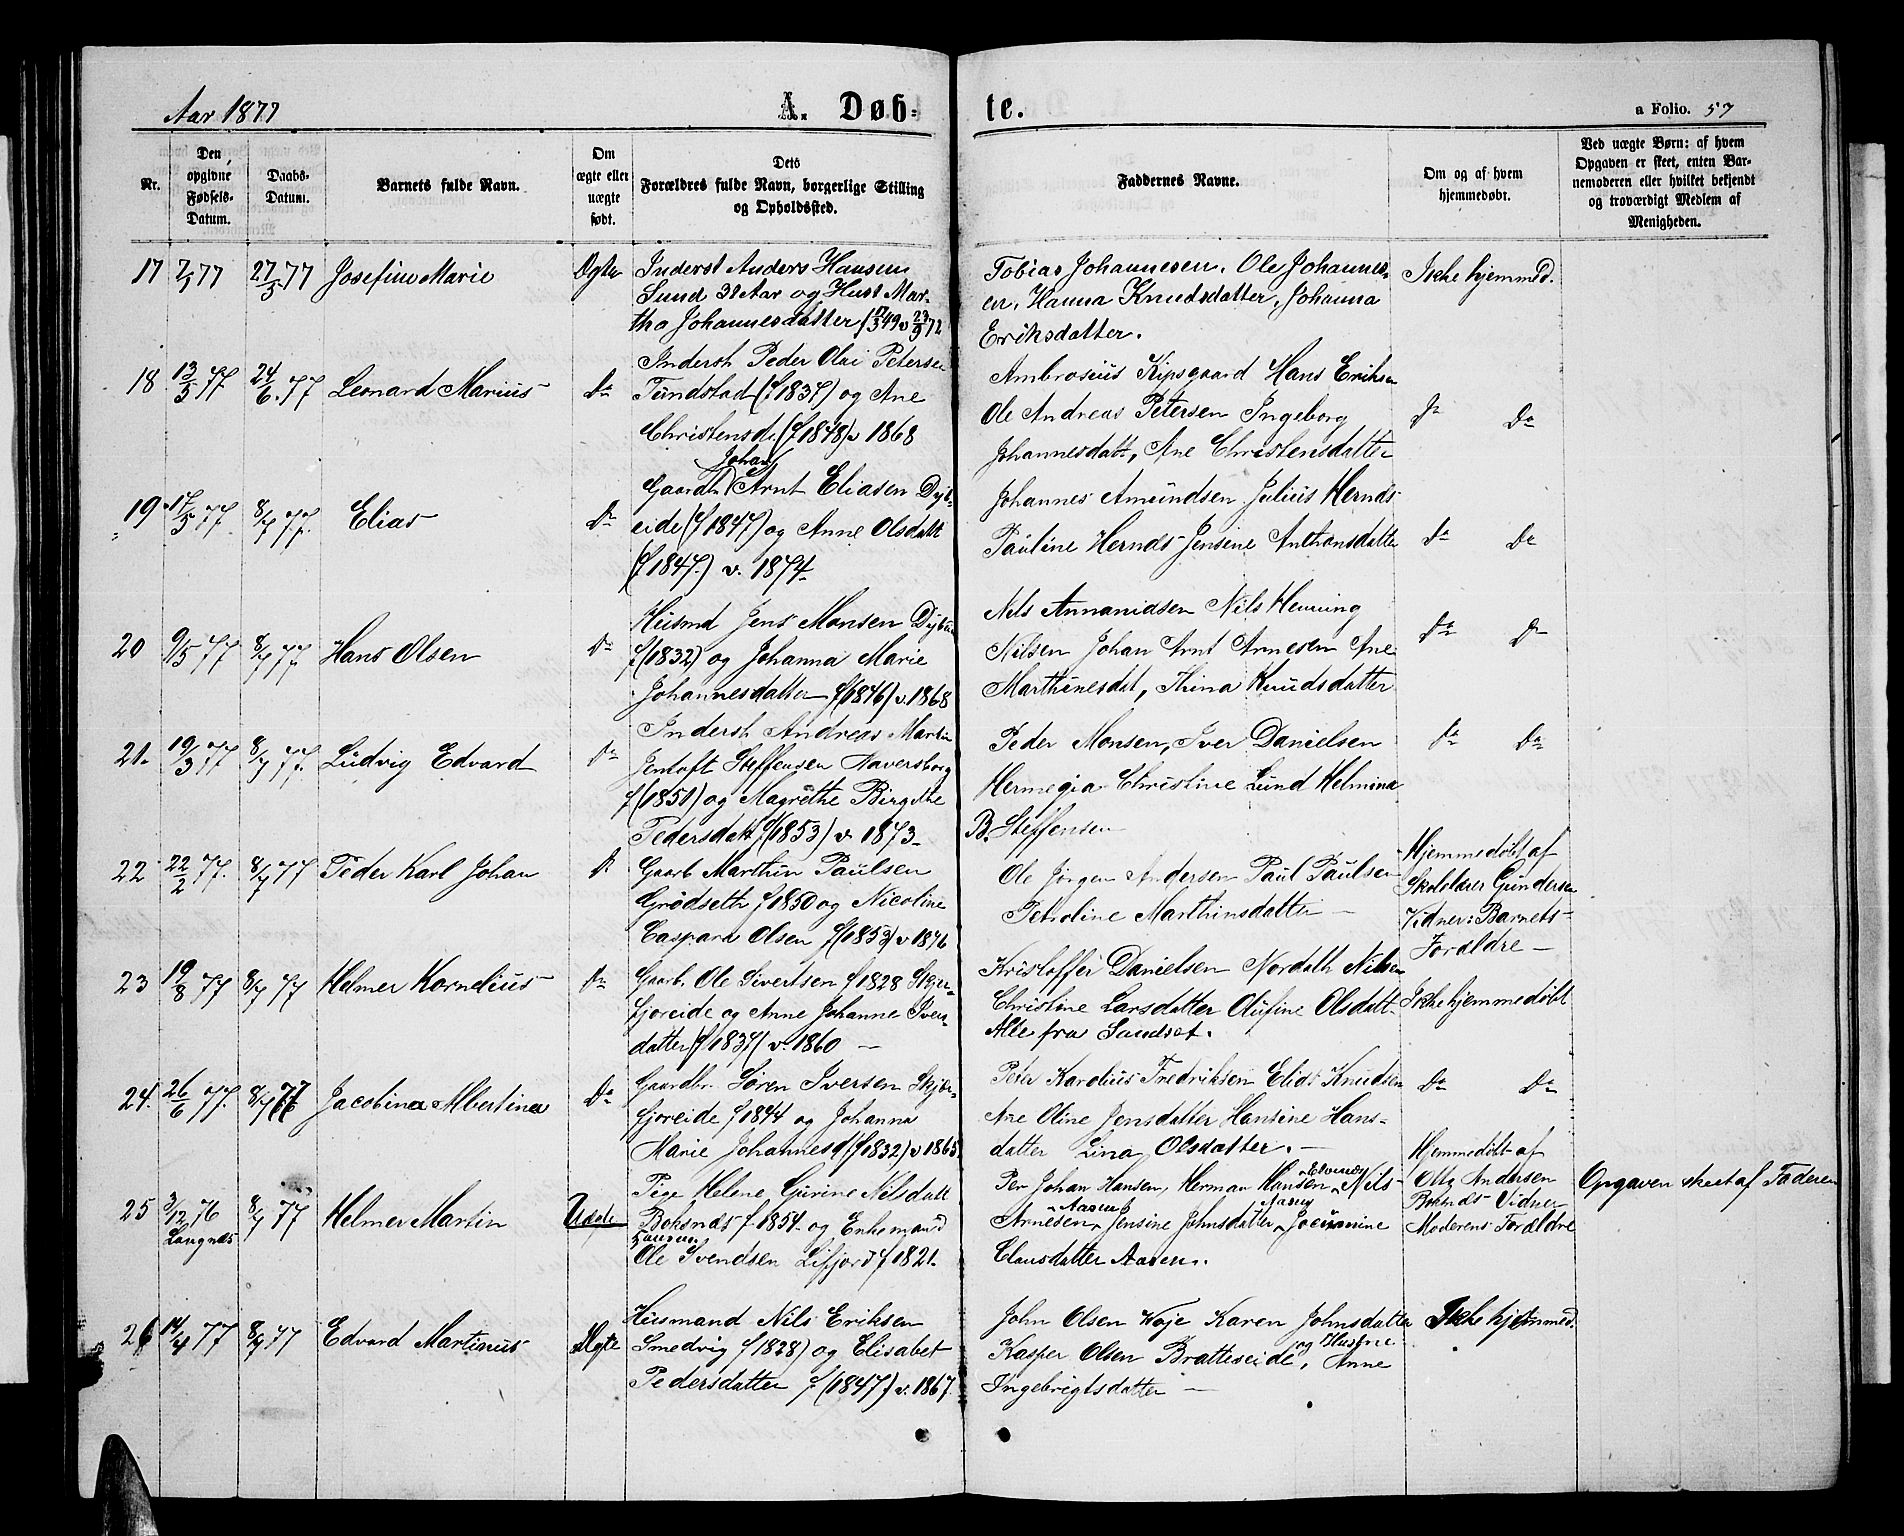 Aar 1877
A. Døb-
te.
a Folio. 57
Nr.
Den opgivne Fødsels-Datum.
Daabs-Datum.
Barnets fulde Navn.
Om ægte eller uægte født.
Dets
Forældres fulde Navn, borgerlige Stilling
og Opholdssted.
Faddernes Navne.
Om og af hvem
hjemmedøbt.
Ved uægte Børn: af hvem
Opgaven er skeet, enten Bar-
nemoderen eller hvilket bekjendt
og troværdigt Medlem af
Menigheden.
17 77 27/5 77 Josefine Marie Ægte
Inderst Anders Hansen
Sund 38 Aar og Hust Mar-
tha Johannesdatter
Tobias Johannesen. Ole Johannes-
en. Hanna Knudsdatter. Johanna
Eriksdatter.
Ikke hjemmed.
18 13/5 77 24/6 77 Leonard Marius Do
Inderst Peder Olai Petersen
Tundstad (f 1837) og Ane
Christensd. (f 1848) v 1868
Ambrosius Kipsgaard Hans Eriksen
Ole Andreas Petersen Ingeborg
Johannesdatt, Ane Christensdatter
Do Do
19 17/5 77. 8/7 77. Elias Do
Johan
Gaardb Arnt Eliasen Dyb-
eide (f 1847) og Anne Olsdatt
(f 1847.) v. 1874
Johannes Amundsen Julius Hernds
Pauline Hernds Jensine Anthonsdatter
Do Do
20 9/5 77 8/7 77. Hans Olsen Do
Husmd Jens Monsen
f (1832) og Johanna Marie
Johannesdatter f (1846) v. 1868
Nils Annanidsen Nils Henning
Nilsen Johan Arnt Arnesen Ane
Marthinesdat, Thina Knudsdatter
Do Do
21. 19/3 77 8/7 77. Ludvig Edvard Do
Inderst Andreas Martin
Jentoft Steffensen Haversborg
f (1851) og Magrethe Birgitte
Pedersdatt f (1853) v. 1873
Peder Monsen, Iver Danielsen
Hermegia Christine Lund Helmina
B. Steffensen
Do Do
22 22/2 77. 8/7 77 Peder Karl Johan
Gaarb Marthin Paulsen
Grödseth f 1850 og Nicoline
Caspara Olsen f (1853) v 1876
Ole Jørgen Andersen Paul Paulsen
Petroline Marthinsdatter
Hjemmedøbt af
Skolelærer Gundersen
Vidner: Barnets
Forældre
23 19/8 77 8/7 77 Helmer Kornelius Do
Gaarb. Ole Sivertsen f 1828 Skjer-
fjoreide og Anne Johanne Iver-
datter (f 1837) v. 1860
Kristoffer Danielsen Nordahl Nilsen
Christine Larsdatter Olufine Olsdatt.
Alle fra Sandset.
Ikke hjemmedøbt
24. 26/6 77. 8/7 77 Jacobina Albertina Do
Gaardbr. Søren Iversen Skjer-
fjoreide f 1844 og Johanna
Marie Johannesd (f 1832) v 1865
Peter Karolius Fredriksen Elias Knudsen
Ane Oline Jensdatter Hansine Hans-
datter Lina Olsdatter.
Do Do
25 3/12 76 8/7 77 Helmer Martin
Langnes
Pige Helene Gurine Nilsdatt
Boksnæs f. 1854. og Enkemand
Ole Svendsen Lifjord f 1821.
Per Johan Hansen, Herman Hansen Nils
Arnesen Aasen, Jensine Johnsdatter
Clausdatter Aasen.
Hjemmedøbt af
Andersen
Boksnæs Vidner
Moderens Forældre
Opgaven skeet af Faderen
26 14/4 77 77 Edvard Martinus Ægte
Husmand Nils Eriksen
Smedvig f 1828) og Elisabet
Pedersdatter f (1847) v. 1867.
John Olsen Koje Karen Johnsdatter
Kasper Olsen Bratteseide og Hustru, Anne
Ingebrigtsdatter
Ikke hjemmed.